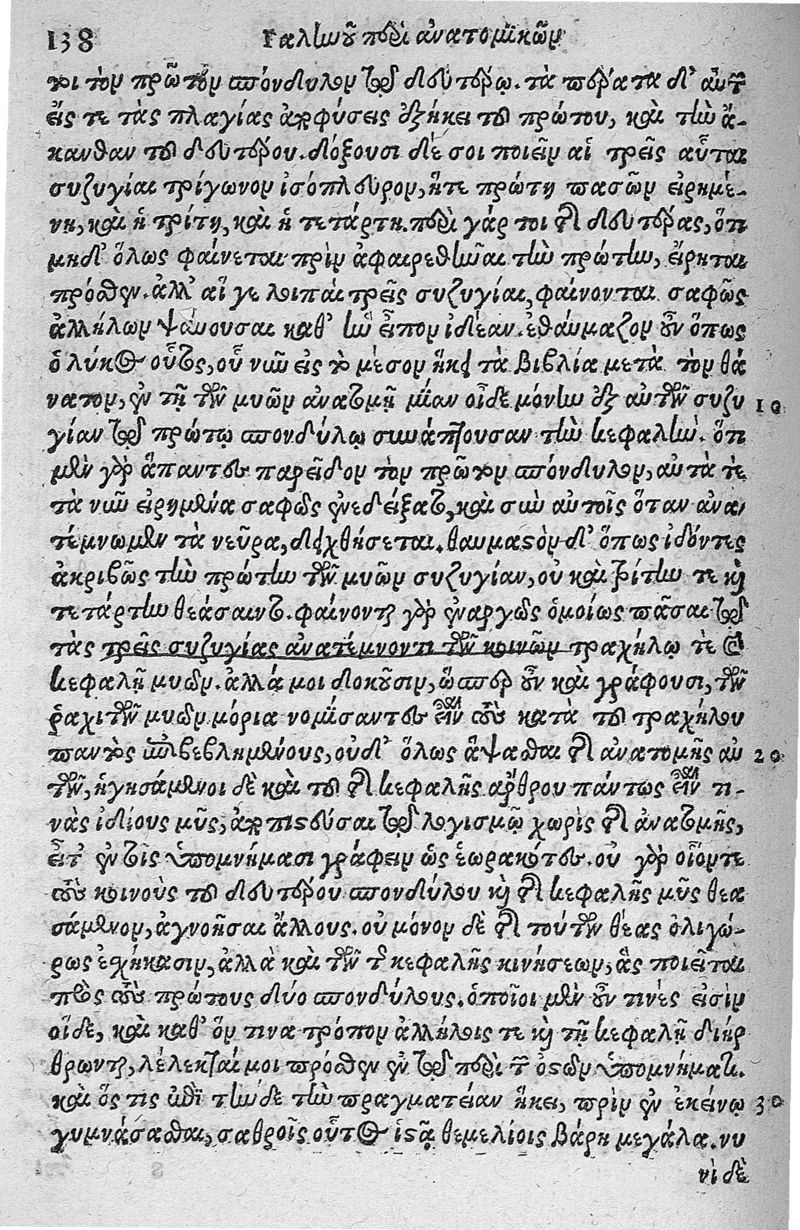 138 Γαλίωοῦ περὶ ἀνατομικῶν
χρι τὸν πρῶτον σπόνδυλον τοῦ δευτέρῳ. τὰ πέρατα δ' αὐτῶν
εἴς τε τὰς πλαγίας ἀποφύσεις ἐξήκει τοῦ πρώτου, καὶ τὴν ἄ-
κανθαν τοῦ δευτέρου. δόξουσι δέ σοι ποιεῖν αἱ τρεῖς αὗται
συζυγίαι τρίγωνον ἰσόπλευρον, ἥτε πρώτη πασῶν εἰρημέ-
νη, καὶ ἡ τρίτη, καὶ ἡ τετάρτη. περὶ γάρ τοι τῆς δευτέρας, ὅτι
μηδ' ὅλως φαίνεται πρὶν ἀφαιρεθῆναι τὴν πρώτην, εἴρηται
πρόσθεν. ἀλλ' αἵ γε λοιπαὶ τρεῖς συζυγίαι, φαίνονται σαφῶς
ἀλλήλων ψαύουσαι καθ' ἣν εἶπον ἰδέαν. ἐθαύμαζον οὖν ὅπως
ὁ λύκος οὗτος, οὗ νῦν εἰς τὸ μέσον ἧκε τὰ βιβλία μετὰ τὸν θά
νατον, ἐν τῇ τῶν μυῶν ἀνατομῇ μίαν οἶδε μόνην ἐξ αὐτῶν συζυ 10
γίαν τῷ πρώτῳ σπονδύλῳ συνάπτουσαν τὴν κεφαλὴν. ὅτι
μὲν γὰρ ἅπαντες παρεῖδον τὸν πρῶτον σπόνδυλον, αὐτά τε
τὰ νῦν εἰρημένα σαφῶς ἐνεδείξατο, καὶ σὺν αὐτοῖς ὅταν ἀνα
τέμνωμεν τὰ νεῦρα, δειχθήσεται. θαυμαστὸν δ' ὅπως ἰδόντες
ἀκριβῶς τὴν πρώτην τῶν μυῶν συζυγίαν, οὐ καὶ τρίτην τε καὶ
τετάρτην θεάσαιντο. φαίνονται γὰρ ἐναργῶς ὁμοίως πᾶσαι τῷ
τὰς τρεῖς συζυγίας ἀνατέμνοντι τῶν κοινῶν τραχήλῳ τε καὶ
κεφαλῇ μυῶν. ἀλλά μοι δοκοῦσιν, ὥσπερ οὖν καὶ γράφουσι, τῶν
ῥαχιτῶν μυῶν μόρια νομίσαντες εἶναι τοὺς κατὰ τοῦ τραχήλου
παντὸς ἐπιβεβλημένους, οὐδ' ὅλως ἅψασθαι τῆς ἀνατομῆς αὐ 20
τῶν, ἡγησάμενοι δὲ καὶ τοῦ τῆς κεφαλῆς ἄρθρου πάντως εἶναι τι-
νὰς ἰδίους μῦς, ἀποπιστεῦσαι τῷ λογισμῷ χωρὶς τῆς ἀνατομῆς,
εἶτ' ἐν τοῖς ὑπομνήμασι γράφειν ὡς ἑωρακότες. οὐ γὰρ οἷόν τε
τοὺς κοινοὺς τοῦ δευτέρου σπονδύλου καὶ τῆς κεφαλῆς μῦς θεα
σάμενον, ἀγνοῆσαι ἄλλους. οὐ μόνον δὲ τῆς τούτων θέας ὀλιγώ-
ρως ἐχήκασιν, ἀλλὰ καὶ τῶν τῆς κεφαλῆς κινήσεων, ἃς ποιεῖται
πρὸς τοὺς πρώτους δύο σπονδύλους. ὁποῖοι μὲν οὖν τινές εἰσιν
οἵδε, καὶ καθ' ὅν τινα τρόπον ἀλλήλοις τε καὶ τῇ κεφαλῇ διήρ
θρωνται, λέλεκταί μοι πρόσθεν ἐν τῷ περὶ τῶν ὀστῶν ὑπομνήματι.
καὶ ὅς τις ἐπὶ τήνδε τὴν πραγματείαν ἥκει, πρὶν ἐν ἐκείνῳ 30
γυμνάσασθαι, σαθροῖς οὗτος ἱστᾷ θεμελίοις βάρη μεγάλα. νυ
νὶ δὲ